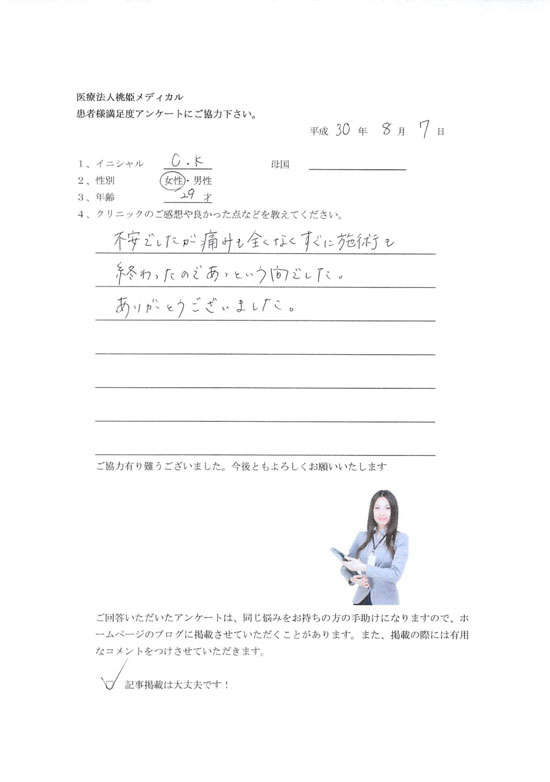 医療法人桃姫メディカル
患者様満足度アンケートにご協力下さい。
平成 30 年 8 月 7 日
1、イニシャル C.K 母国
2、性別 女性・男性
3、年齢 29 才
4、クリニックのご感想や良かった点などを教えてください。
不安でしたが痛みも全くなくすぐに施術も
終わったのであっという間でした。
ありがとうございました。
ご協力有り難うございました。今後ともよろしくお願いいたします
ご回答いただいたアンケートは、同じ悩みをお持ちの方の手助けになりますので、ホ
ームページのブログに掲載させていただくことがあります。また、掲載の際には有用
なコメントをつけさせていただきます。
記事掲載は大丈夫です！